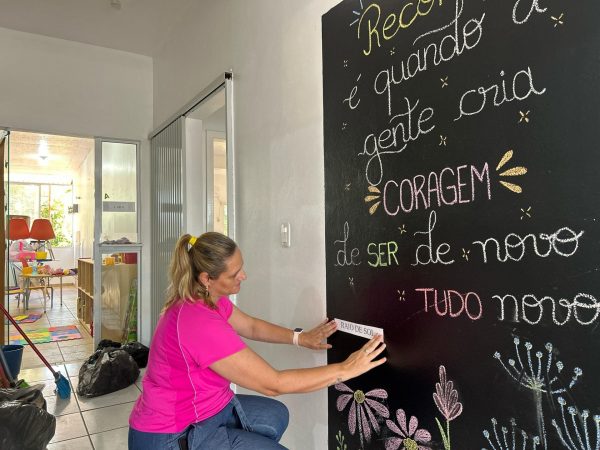 é quando a
gente cria
CORAGEM
de SER de novo
TUDO novo
RAIO DE SOL